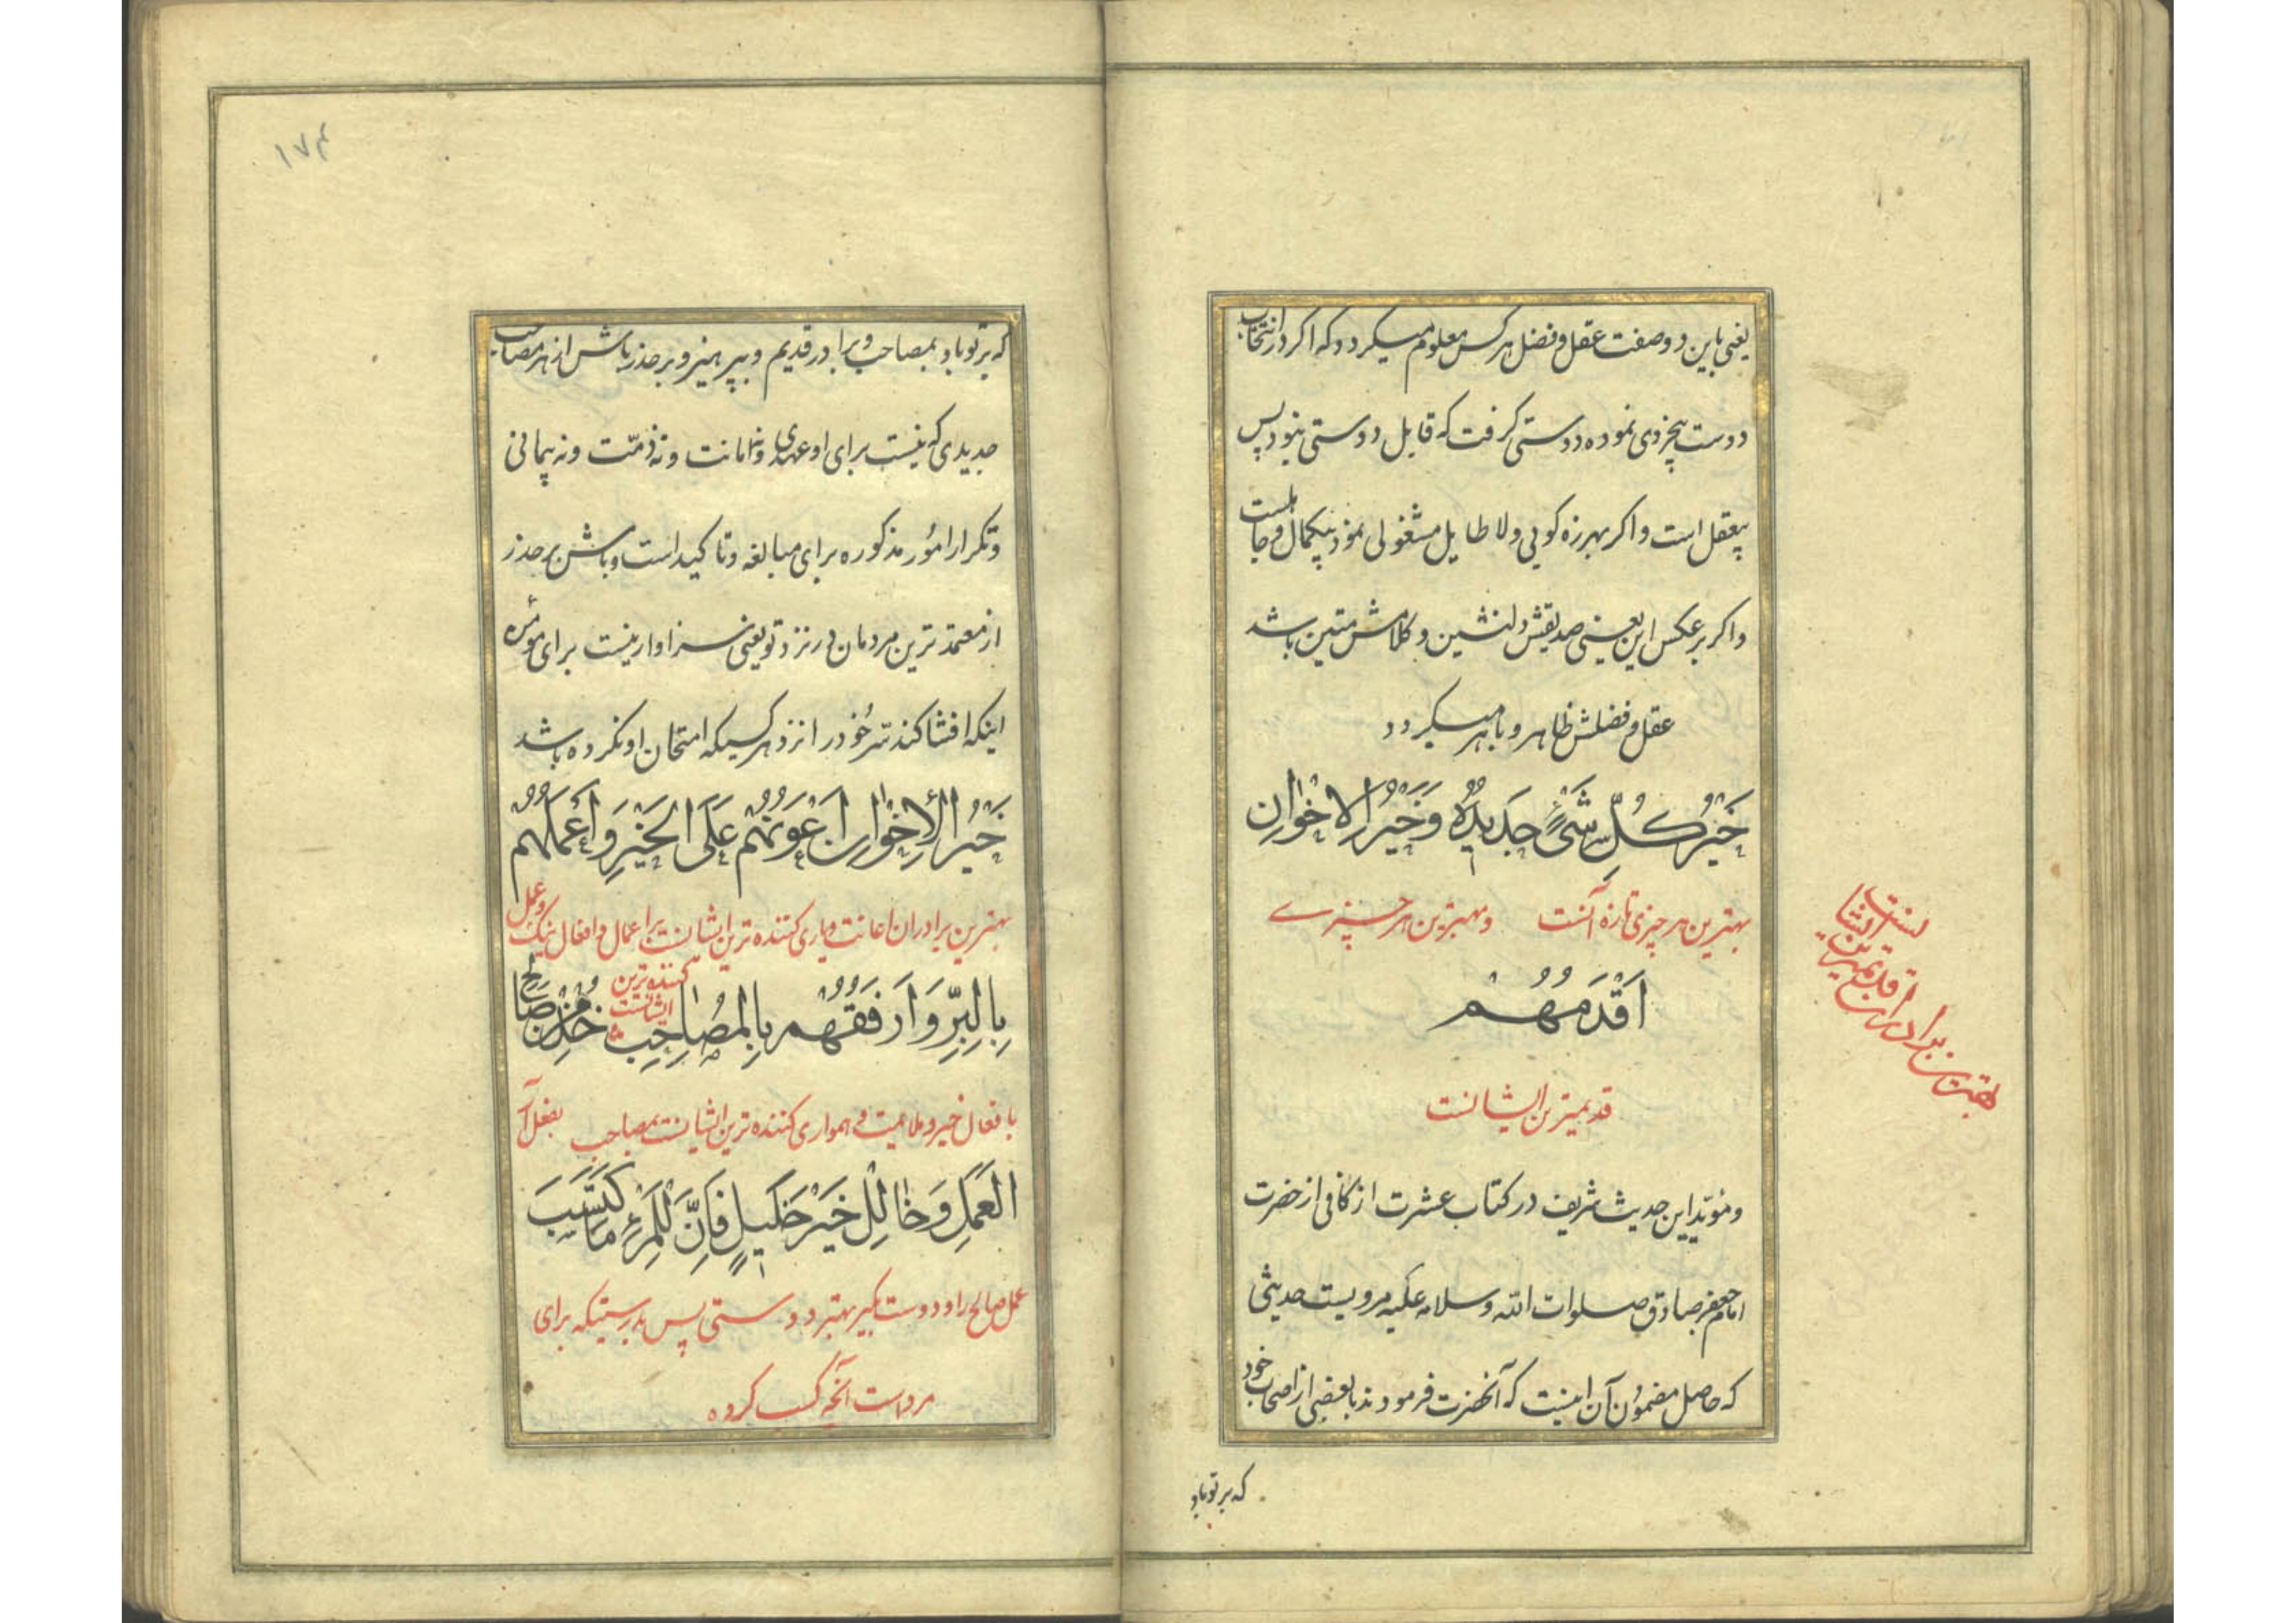 یعنی باین دو وصفت عقل و فضل هر کس معلوم میکردد که اکر در انتخاب
دوست بیخردی نموده دوستی کرفت که قابل دوستی نبود پس
بیعقل است و اکر بهرزه کویی و لا طایل مشغولی نمود بیکمال و جاهلست
و اکر بر عکس این یعنی صدیقش دلنشین و کلامش متین باشد
عقل و فضلش ظاهر و باهر میکردد
خَیْرُ کُلِّ شَیْءٍ جَدیدُهُ وَ خَیْرُ الْاِخْوانِ
بهترین هر چیزی تازه آنست و بهترین هر چیزے
اَقْدَمُهُمْ
قدیمترین ایشانست
بهترین برادران قدیمترین ایشانست
و مؤید این حدیث شریف در کتاب عشرت از کافی از حضرت
امام جعفر صادق صلوات الله و سلامه علیه مرویست حدیثی
که حاصل مضمون آن اینست که آنحضرت فرمودند ببعضی از اصحاب خود
که بر تو باد
۱۷۴
که بر تو باد بمصاحب و برادر قدیم و بپرهیز و بر حذر باش از هر مصاحب
جدیدی که نیست برای او عهدی و نه امانت و نه ذمّت و نه پیمانی
و تکرار امور مذکوره برای مبالغه و تاکید است و باش بر حذر
از معتمدترین مردمان در نزد تو یعنی سزاوار نیست برای مؤمن
اینکه افشا کند سرّ خود را نزد هر کسیکه امتحان او نکرده باشد
خَیْرُ الْاِخْوانِ اَعْوَنُهُمْ عَلَی الْخَیْرِ وَ اَعْمَلُهُمْ
بهترین برادران اعانت و یاری کننده ترین ایشانست بر اعمال و افعال نیک و عمل
کننده ترین ایشانست
بِالْبِرِّ وَ اَرْفَقُهُمْ بِالْمُصاحِبِ خُذْ مِنْ صالِحِ
بافعال خیر و ملایمت و همواری کننده ترین ایشانست بمصاحب بفعل آر
الْعَمَلِ وَ خالِلْ خَیْرَ خَلیلٍ فَاِنَّ لِلْمَرْءِ مَا کْتَسَبَ
عمل صالح را و دوست بکیر بهتر دوستی پس بدرستیکه برای
مرد است آنچه کسب کرده